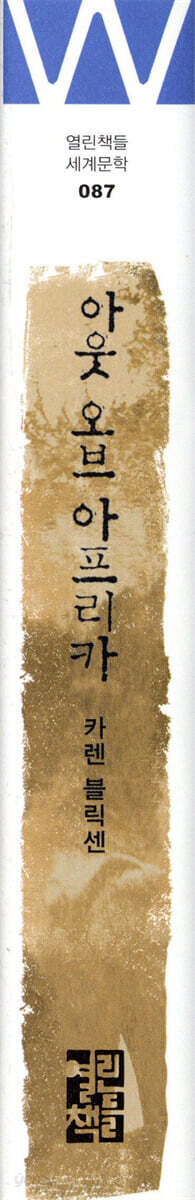 W
열린책들
세계문학
087
아웃 오브 아프리카
카렌 블릭센
열린
책들